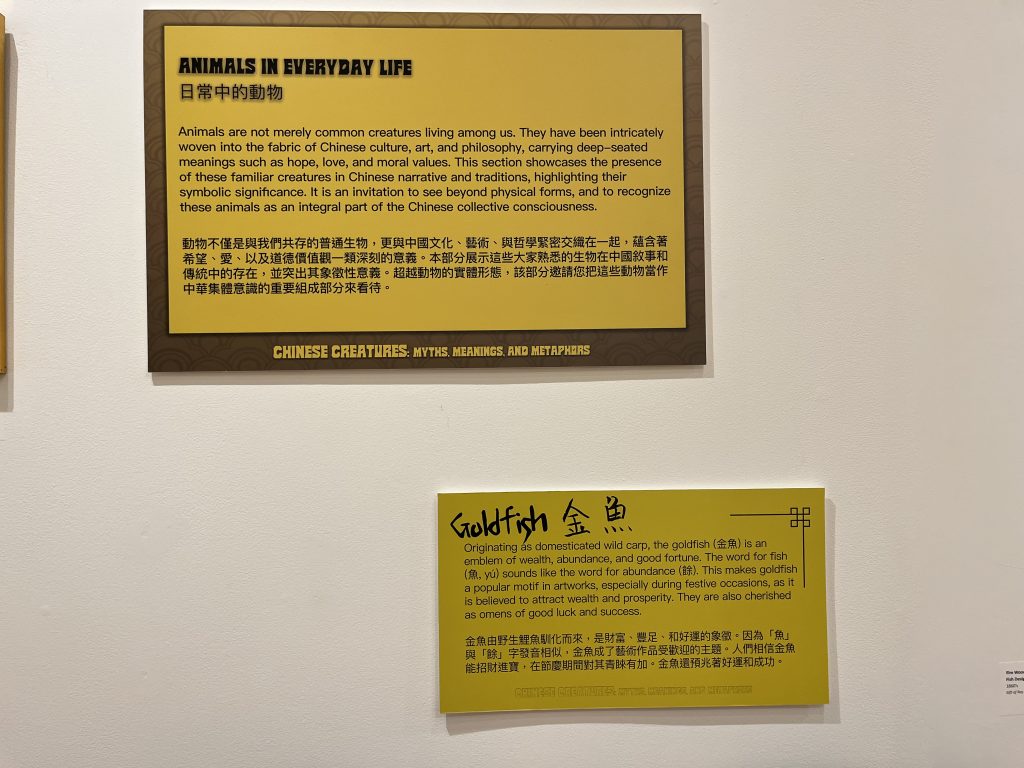 ANIMALS IN EVERYDAY LIFE
日常中的動物
Animals are not merely common creatures living among us. They have been intricately
woven into the fabric of Chinese culture, art, and philosophy, carrying deep-seated
meanings such as hope, love, and moral values. This section showcases the presence
of these familiar creatures in Chinese narrative and traditions, highlighting their
symbolic significance. It is an invitation to see beyond physical forms, and to recognize
these animals as an integral part of the Chinese collective consciousness.
動物不僅是與我們共存的普通生物，更與中國文化、藝術、與哲學緊密交織在一起，蘊含著
希望、愛、以及道德價值觀一類深刻的意義。本部分展示這些大家熟悉的生物在中國敘事和
傳統中的存在，並突出其象徵性意義。超越動物的實體形態，該部分邀請您把這些動物當作
中華集體意識的重要組成部分來看待。
CHINESE CREATURES: MYTHS, MEANINGS, AND METAPHORS
Goldfish 金魚
Originating as domesticated wild carp, the goldfish (金魚) is an
emblem of wealth, abundance, and good fortune. The word for fish
(魚, yú) sounds like the word for abundance (餘). This makes goldfish
a popular motif in artworks, especially during festive occasions, as it
is believed to attract wealth and prosperity. They are also cherished
as omens of good luck and success.
金魚由野生鯉魚馴化而來，是財富、豐足、和好運的象徵。因為「魚」
與「餘」字發音相似，金魚成了藝術作品受歡迎的主題。人們相信金魚
能招財進寶，在節慶期間對其青睞有加。金魚還預兆著好運和成功。
CHINESE CREATURES: MYTHS, MEANINGS, AND METAPHORS
Fish Desig